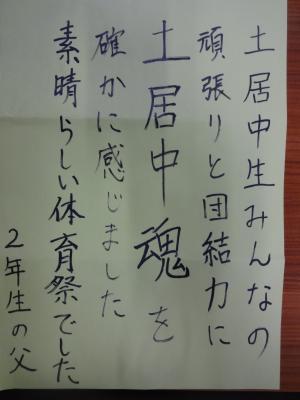 土居中生みんなの
頑張りと団結力に
土居中魂を
確かに感じました
素晴らしい体育祭でした
2年生の父